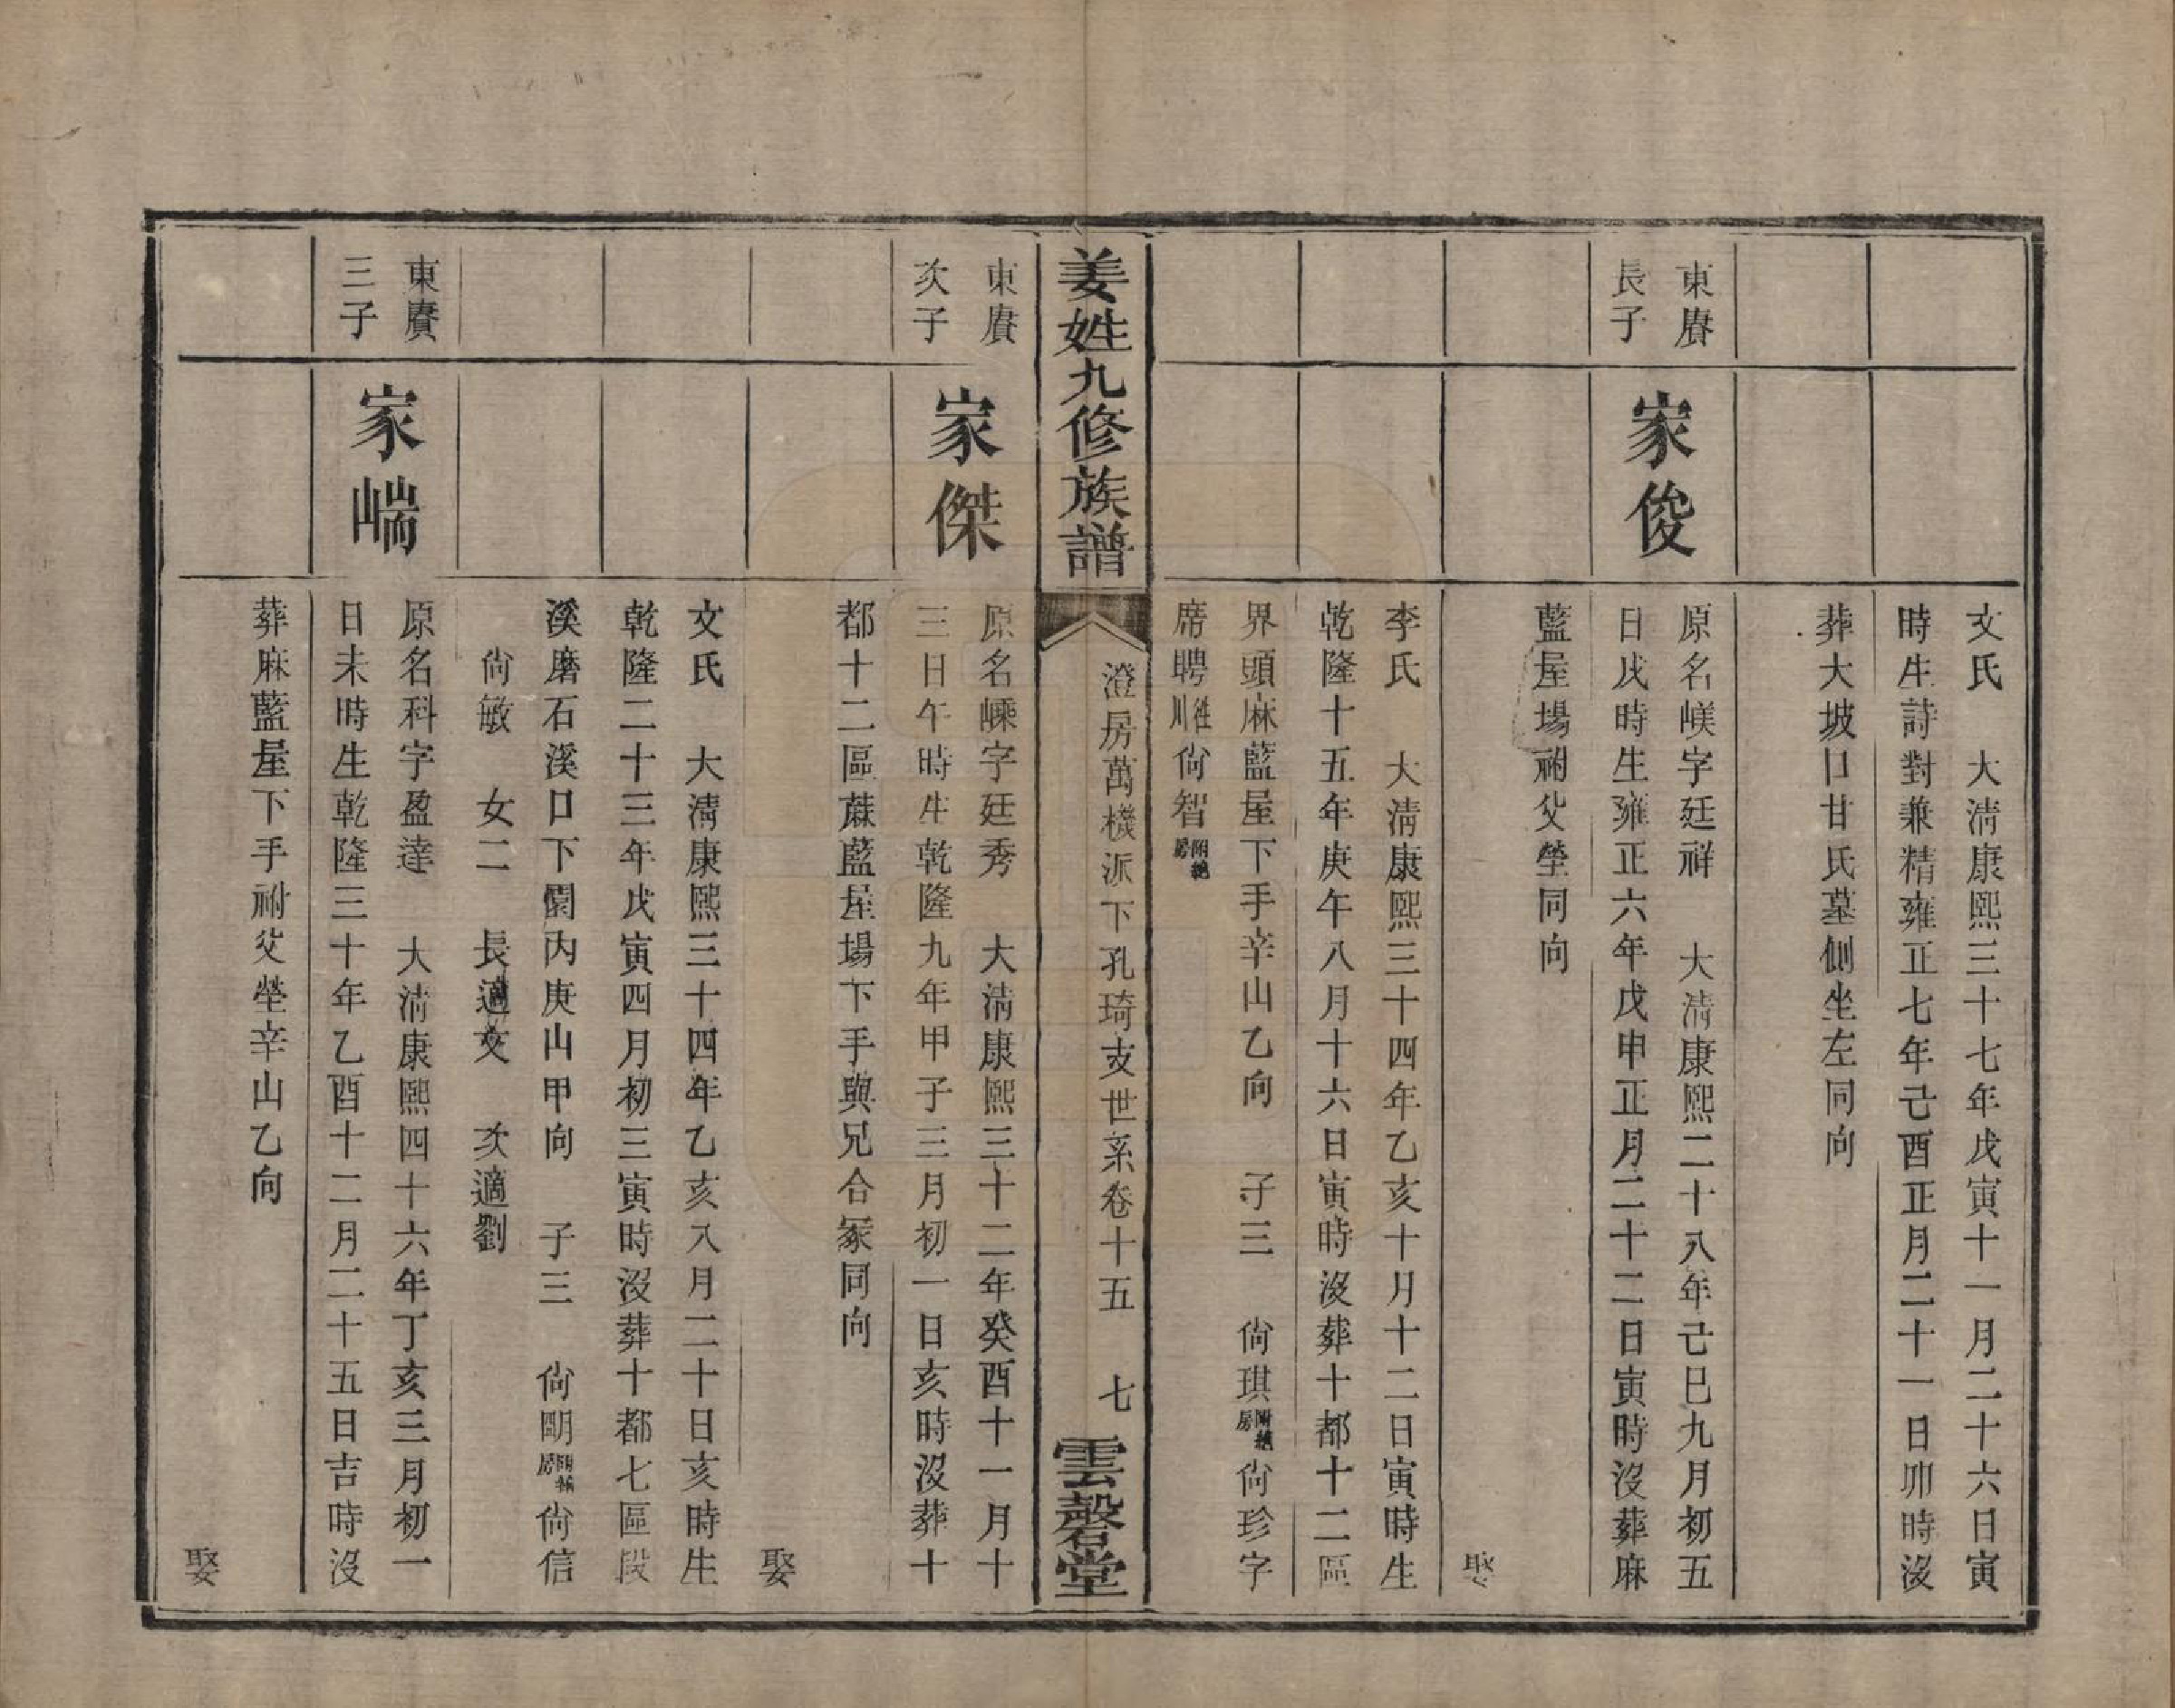 文氏　大淸康熙三十七年戊寅十一月二十六日寅
時生詩對兼精雍正七年己酉正月二十一日卯時沒
葬大坡口甘氏墓側坐左同向
東賡
長子
家俊
原名嵄字廷祥　大淸康熙二十八年己巳九月初五
日戌時生雍正六年戊申正月二十二日寅時沒葬麻
藍屋場祔父塋同向
娶
李氏　大淸康熙三十四年乙亥十月十二日寅時生
乾隆十五年庚午八月十六日寅時沒葬十都十二區
界頭麻藍屋下手辛山乙向　子三　尙琪附總房尙珍字
席聘徃川尙智附總房
姜姓九修族譜
澄房萬機派下孔琦支世系卷十五　七
雲磬堂
東賡
次子
家傑
原名嵊字廷秀　大淸康熙三十二年癸酉十一月十
三日午時生乾隆九年甲子三月初一日亥時沒葬十
都十二區蔴藍屋場下手與兄合冢同向
娶
文氏　大淸康熙三十四年乙亥八月二十日亥時生
乾隆二十三年戊寅四月初三寅時沒葬十都七區段
溪磨石溪口下園內庚山甲向　子三　尙明附總房尙信
尙敏　女二　長適文　次適劉
東賡
三子
家㟨
原名科字盈達　大淸康熙四十六年丁亥三月初一
日未時生乾隆三十年乙酉十二月二十五日吉時沒
葬麻藍屋下手祔父塋辛山乙向
娶